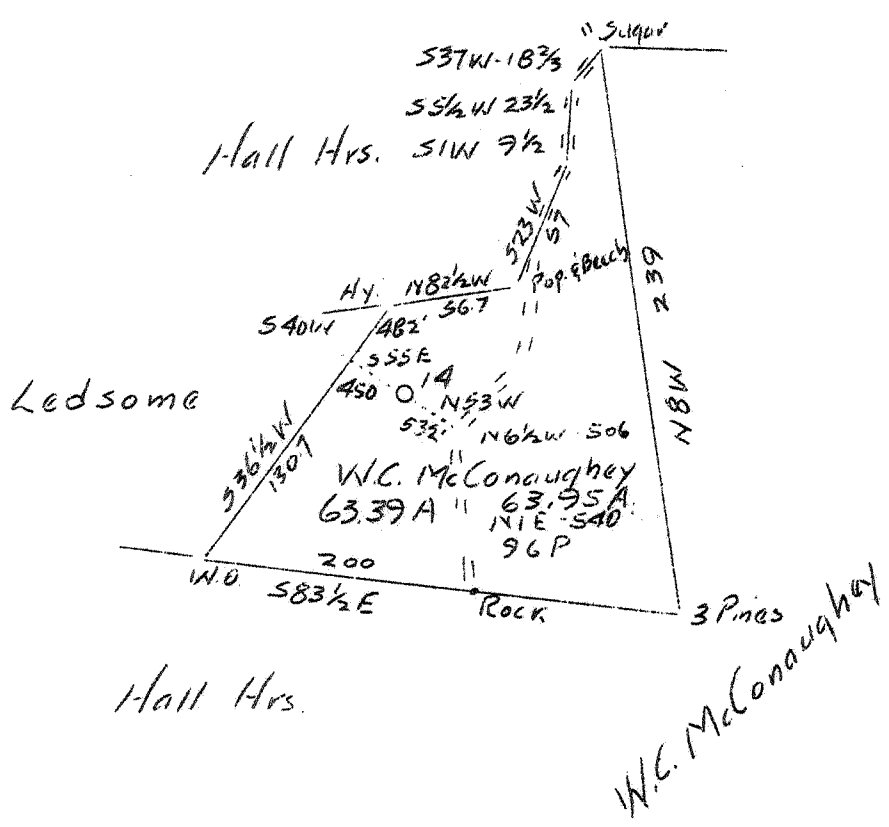 " Sugar
S37W-18 2/3
S5 1/2 W 23 1/2
Hall Hrs. S1W 9 1/2
S23W
57
Pop. & Beech
N8W 239
Hy. N82 1/2 W
56.7
S40W
482'
S55E
Ledsome
450 14
N53W
532'
N6 1/2 W 506
S36 1/2 W
130.7
W.C. McConaughey
63.39 A " 63.95 A.
N1E 540
96 P
200
W.O.
S83 1/2 E
Rock
3 Pines
Hall Hrs.
W.C. McConaughey